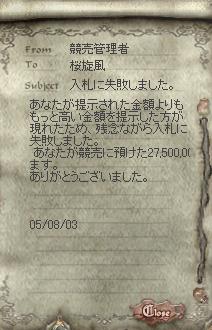 From 競売管理者
To 桜旋風
Subject 入札に失敗しました。
あなたが提示された金額よりも
もっと高い金額を提示した方が
現れたため、残念ながら入札に
失敗しました。
あなたが競売に預けた27,500,00
ます。
ありがとうございました。
05/08/03
Close